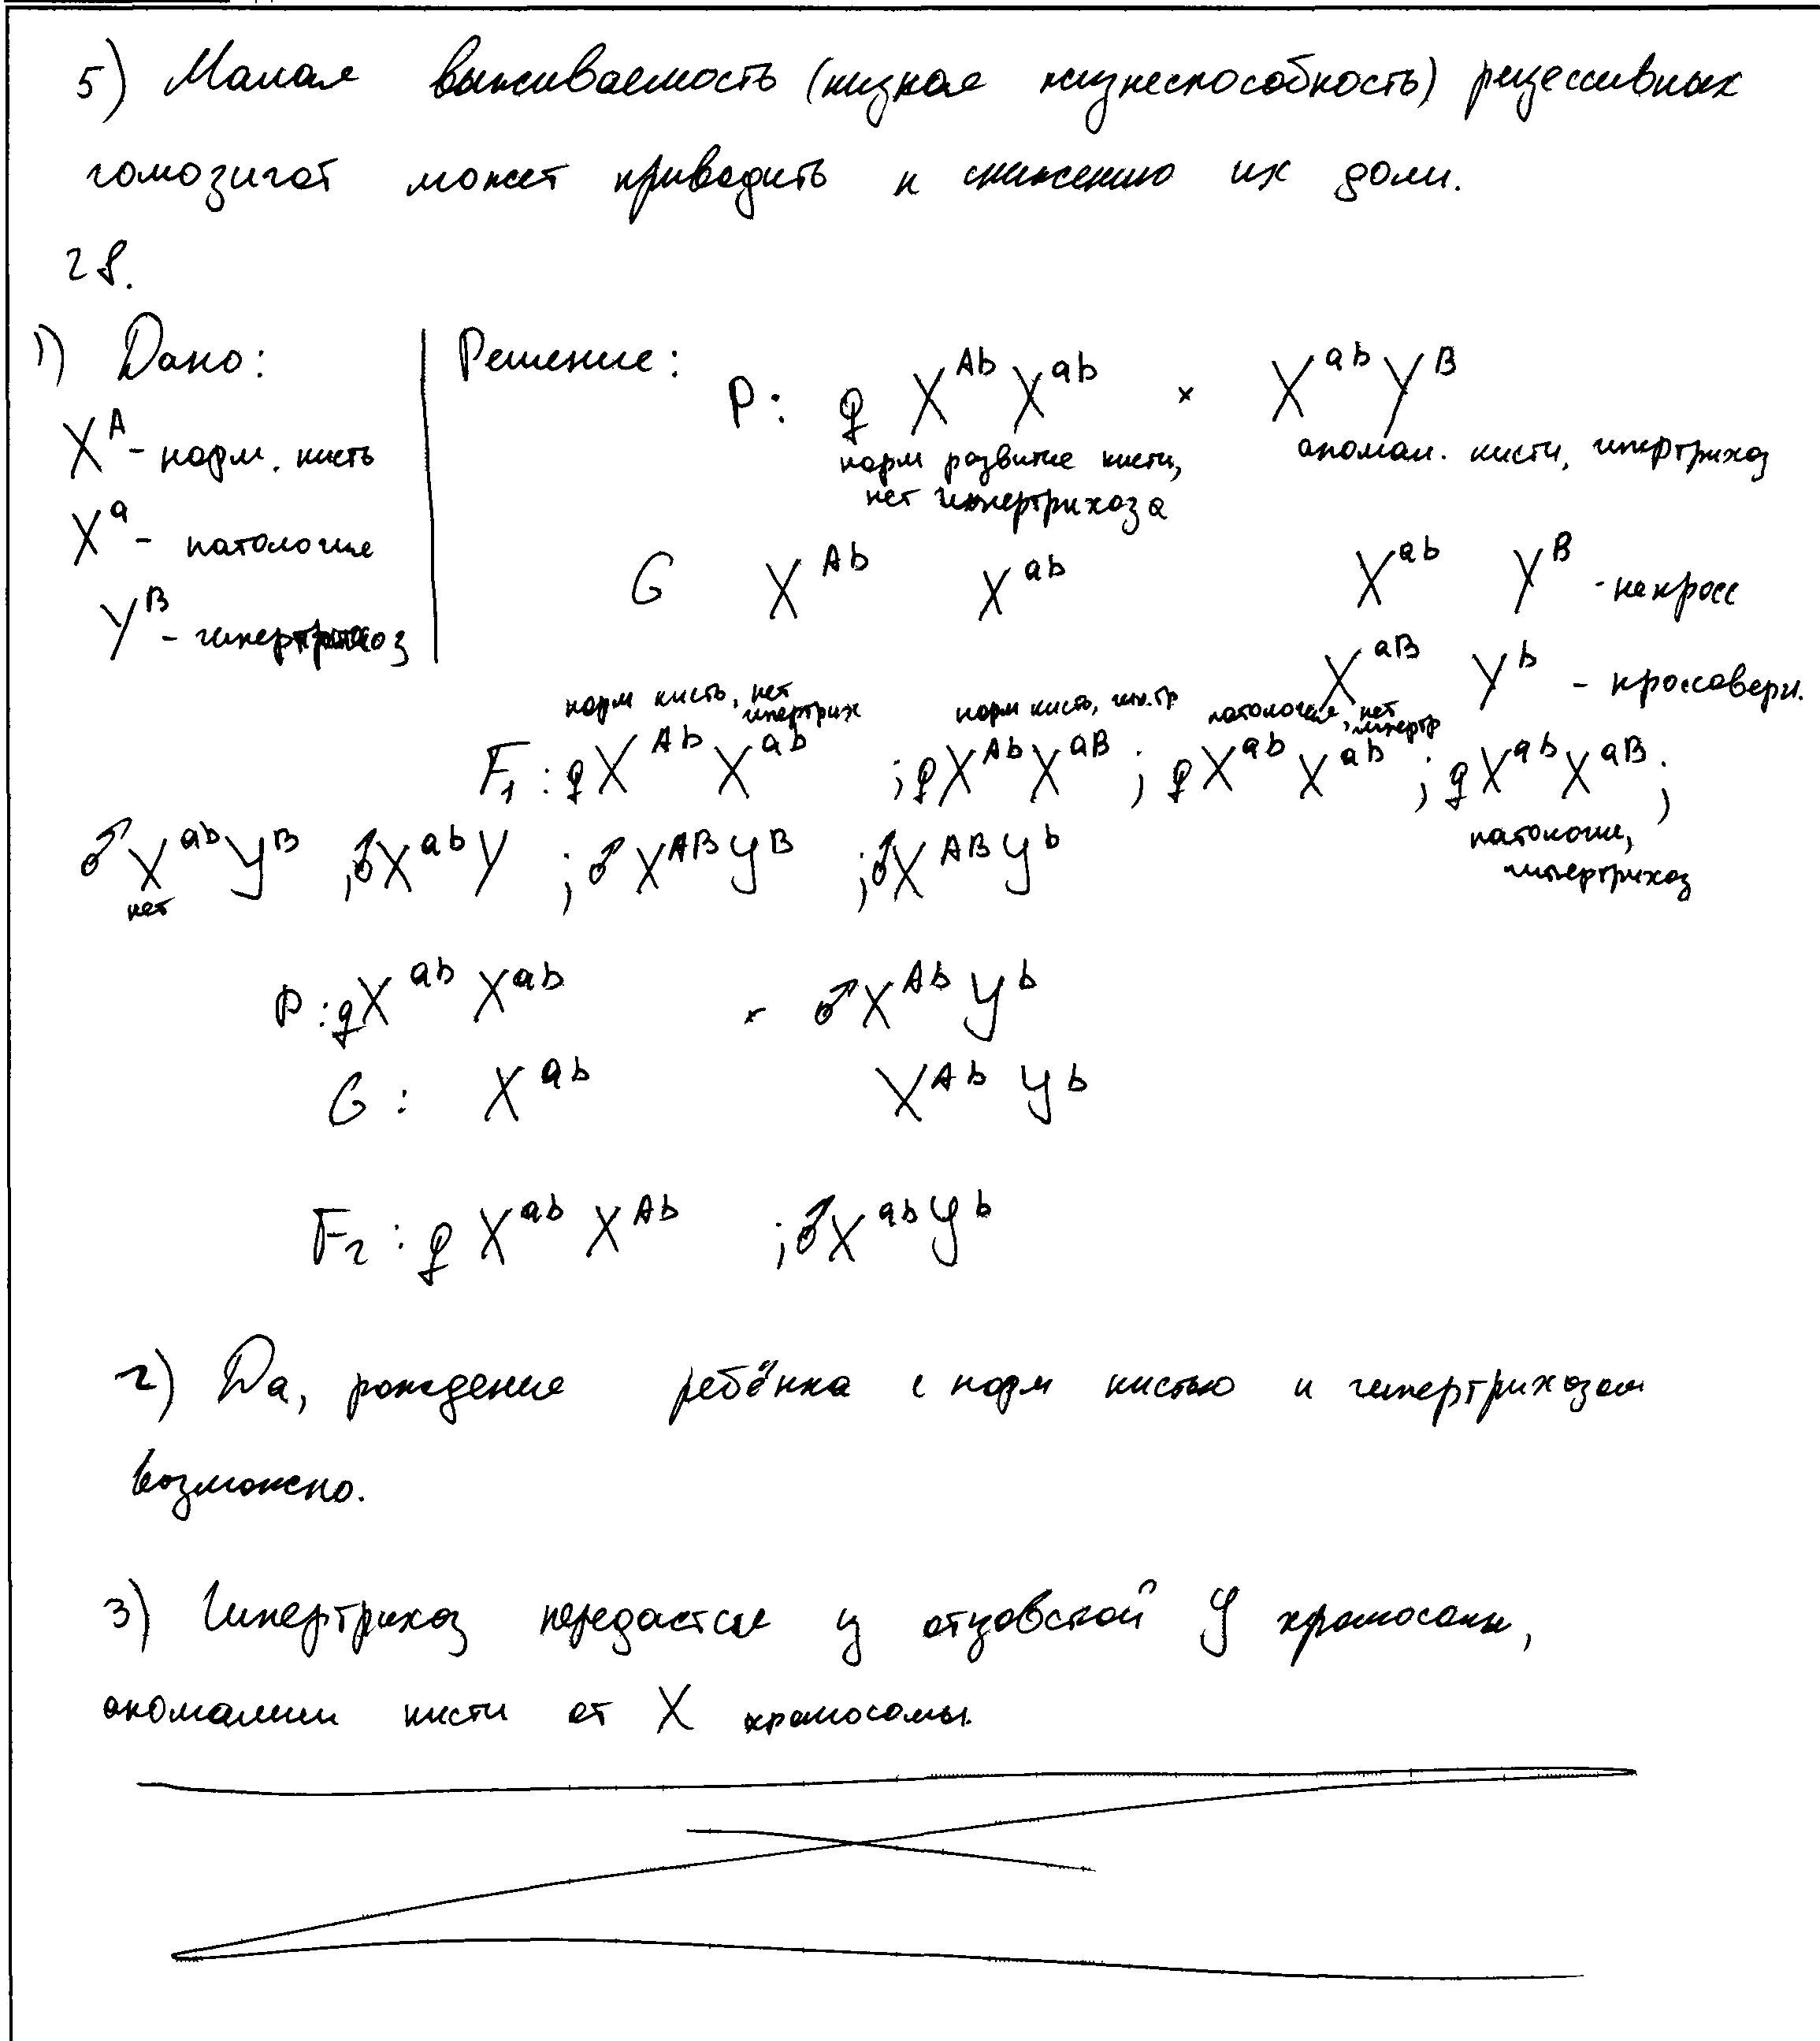 5) Малая выживаемость (низкая жизнеспособность) рецессивных
гомозигот может приводить к снижению их доли.
28.
1) Дано:
X^A - норм. кисть
X^a - патология
Y^B - гипертрихоз
Решение:
P: ♀ X^Ab X^ab × X^ab Y^B
норм развитие кисти, аномал. кисти, гипертрихоз
нет гипертрихоза
G X^Ab X^ab X^ab Y^B - некросс
X^aB Y^b - кроссоверн.
норм кисть, нет гипертрих норм кисть, гип.тр патология, нет гипертр
F1: ♀ X^Ab X^ab ; ♀ X^Ab X^aB ; ♀ X^ab X^ab ; ♀ X^ab X^aB ;
патологии, гипертрихоз
♂ X^ab Y^B ; ♂ X^ab Y ; ♂ X^AB Y^B ; ♂ X^AB Y^b
нет
P: ♀ X^ab X^ab × ♂ X^Ab Y^b
G: X^ab X^Ab Y^b
F2: ♀ X^ab X^Ab ; ♂ X^ab Y^b
2) Да, рождение ребёнка с норм кистью и гипертрихозом
возможно.
3) Гипертрихоз передастся из отцовской Y хромосомы,
аномалии кисти от X хромосомы.